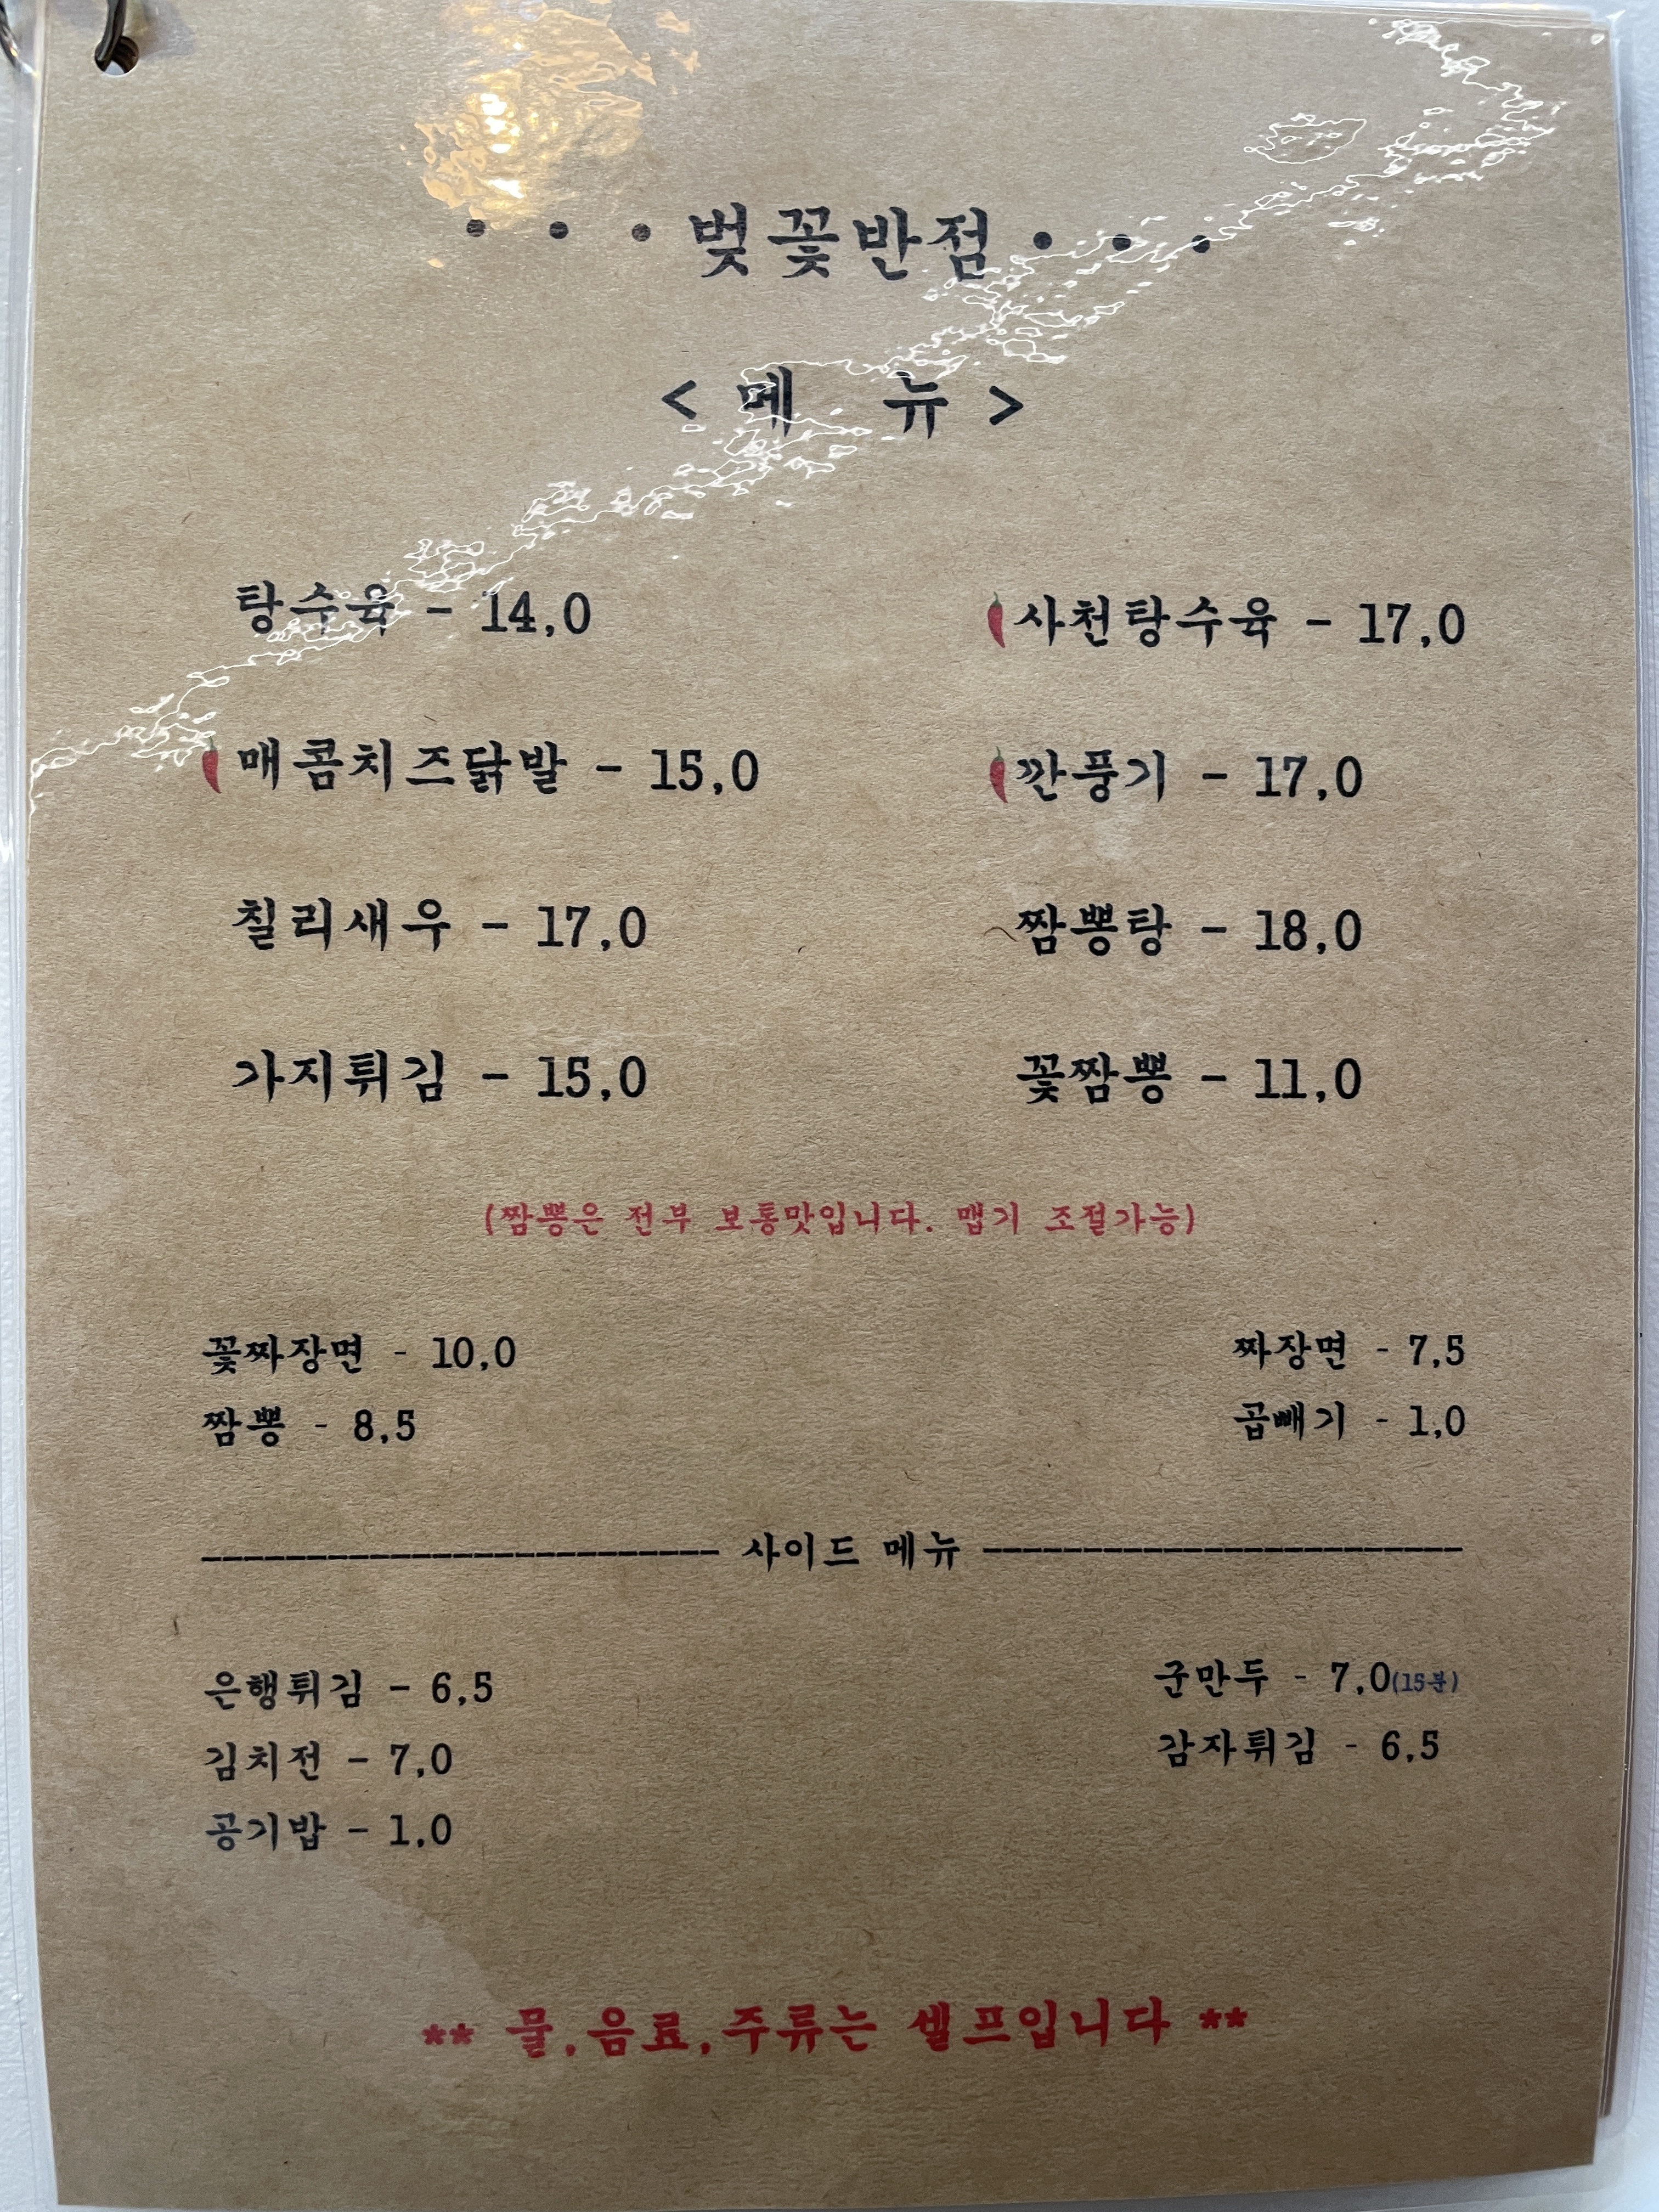 · · · 벚꽃반점 · · ·
< 메 뉴 >
탕수육 - 14,0
사천탕수육 - 17,0
매콤치즈닭발 - 15,0
깐풍기 - 17,0
칠리새우 - 17,0
짬뽕탕 - 18,0
가지튀김 - 15,0
꽃짬뽕 - 11,0
(짬뽕은 전부 보통맛입니다. 맵기 조절가능)
꽃짜장면 - 10,0
짜장면 - 7,5
짬뽕 - 8,5
곱빼기 - 1,0
------------------------- 사이드 메뉴 -----------------------
은행튀김 - 6,5
군만두 - 7,0(15분)
김치전 - 7,0
감자튀김 - 6,5
공기밥 - 1,0
** 물,음료,주류는 셀프입니다 **